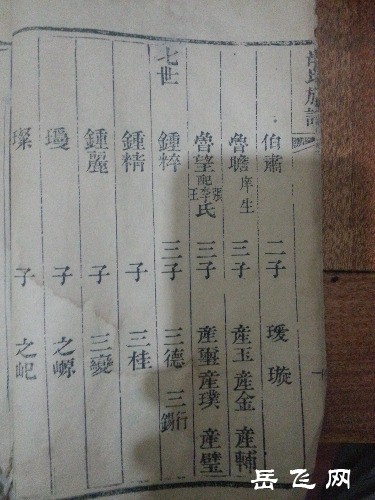 族譜
伯肅 二子 瑗 璇
魯瞻 庠生 三子 產玉 產金 產輔
魯望 配李氏 張 王 三子 產璽 產璞 產璧
七世
鍾粹 三子 三德 三錫 三行
鍾精 子 三桂
鍾麗 子 三變
璦 子 之嫄
璨 子 之屺
岳飞网